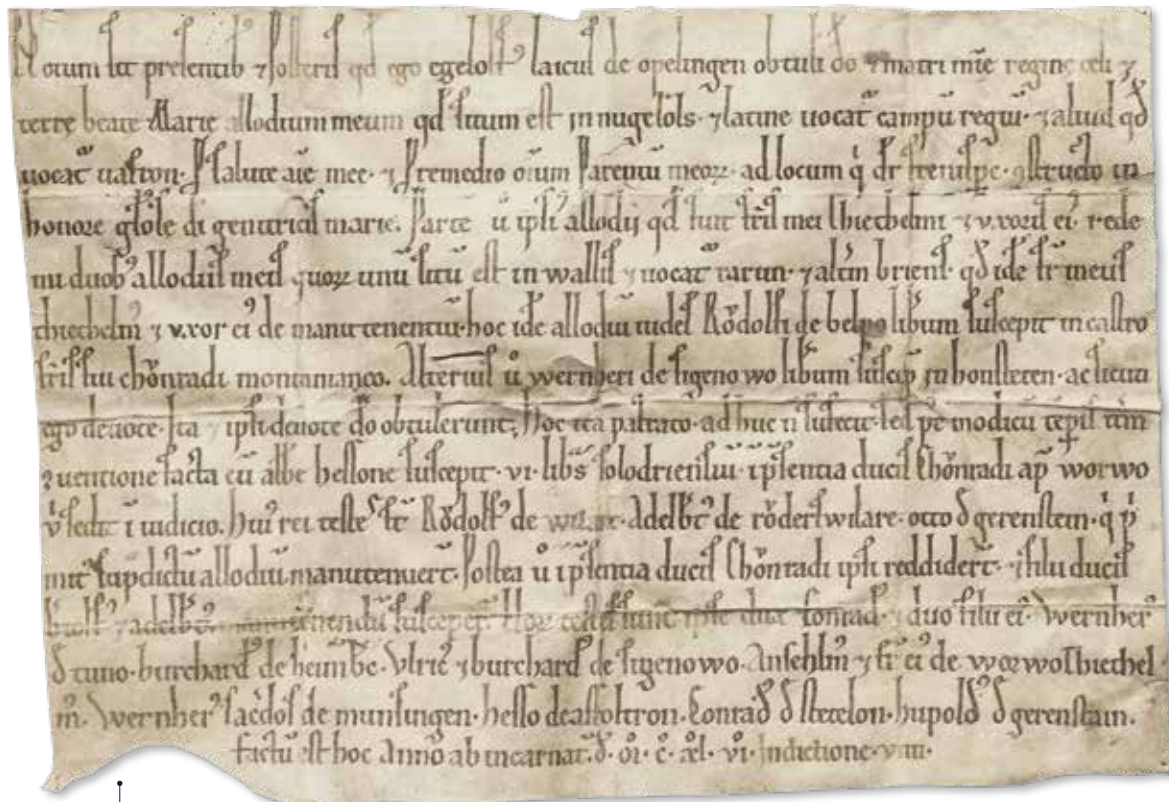 Notum sit presentib ⁊ posteris qd ego egelolf' laicus de opelingen obtuli do ⁊ matri mie regine celi ⁊
terre beate Marie allodium meum qd situm est in nugerols · ⁊ latine uocat campũ regiũ · ⁊ aliud qd
uocat uastron · P salute aie mee · ⁊ P remedio oium Parentũ meoꝝ · ad locum q dr frenispe · ꝯstructo in
honore gliose di genitricis marie. Parte ũ ipsi' allodij qd fuit fris mei Thiechelmi ⁊ vxoris ei' rede
mi duob' allodiis meis quoꝝ unũ sitũ est in wallis ⁊ uocat rarun · ⁊ altm briens · qd ide fr meus
thiechelm' ⁊ vxor ei' de manu tenentiũ · hoc ide allodiũ uidel Rodolfi de belpo libum suscepit in castro
fris sui chonradi montanianco. Alterius ũ wernheri de sigenowo libum suscep in honsteten · ac sicuti
ego deuote · ita ⁊ ipsi deuote do obtulerunt; Hoc ita patrato · ad huc ñ suffecit · sed p modicũ tepis itm
ꝯuentione facta cũ abbe hessone suscepit · vi · libras solodriensiũ · ipsentia ducis Chonradi ap worwo
v sedit ĩ iudicio. Hui' rei testes st Rodolf' de · Adelbt' de roderswilare · otto d gerenstein · q p
mit' supdictũ allodiũ manutenuert · Postea ũ ipsentia ducis Chonradi ipsi reddidert · ⁊ filii ducis
⁊ adelbt' tenendũ susceper. Hoꝝ testes sunt ipse dux Conrad' ⁊ duo filii ei' · Wernher'
d tuno · burchard' de heimbc · Vlric' ⁊ burchard' de sigenowo · Anselhm' ⁊ fr ei' de worwo thiechel
m'. Wernher' sacdos de munsingen · hesso de affoltron · Conrad' d stecelon · hupold' d gerenstain.
factũ est hoc Anno ab incarnat · d · oi · c · æl · vi · Indictione · viii ·